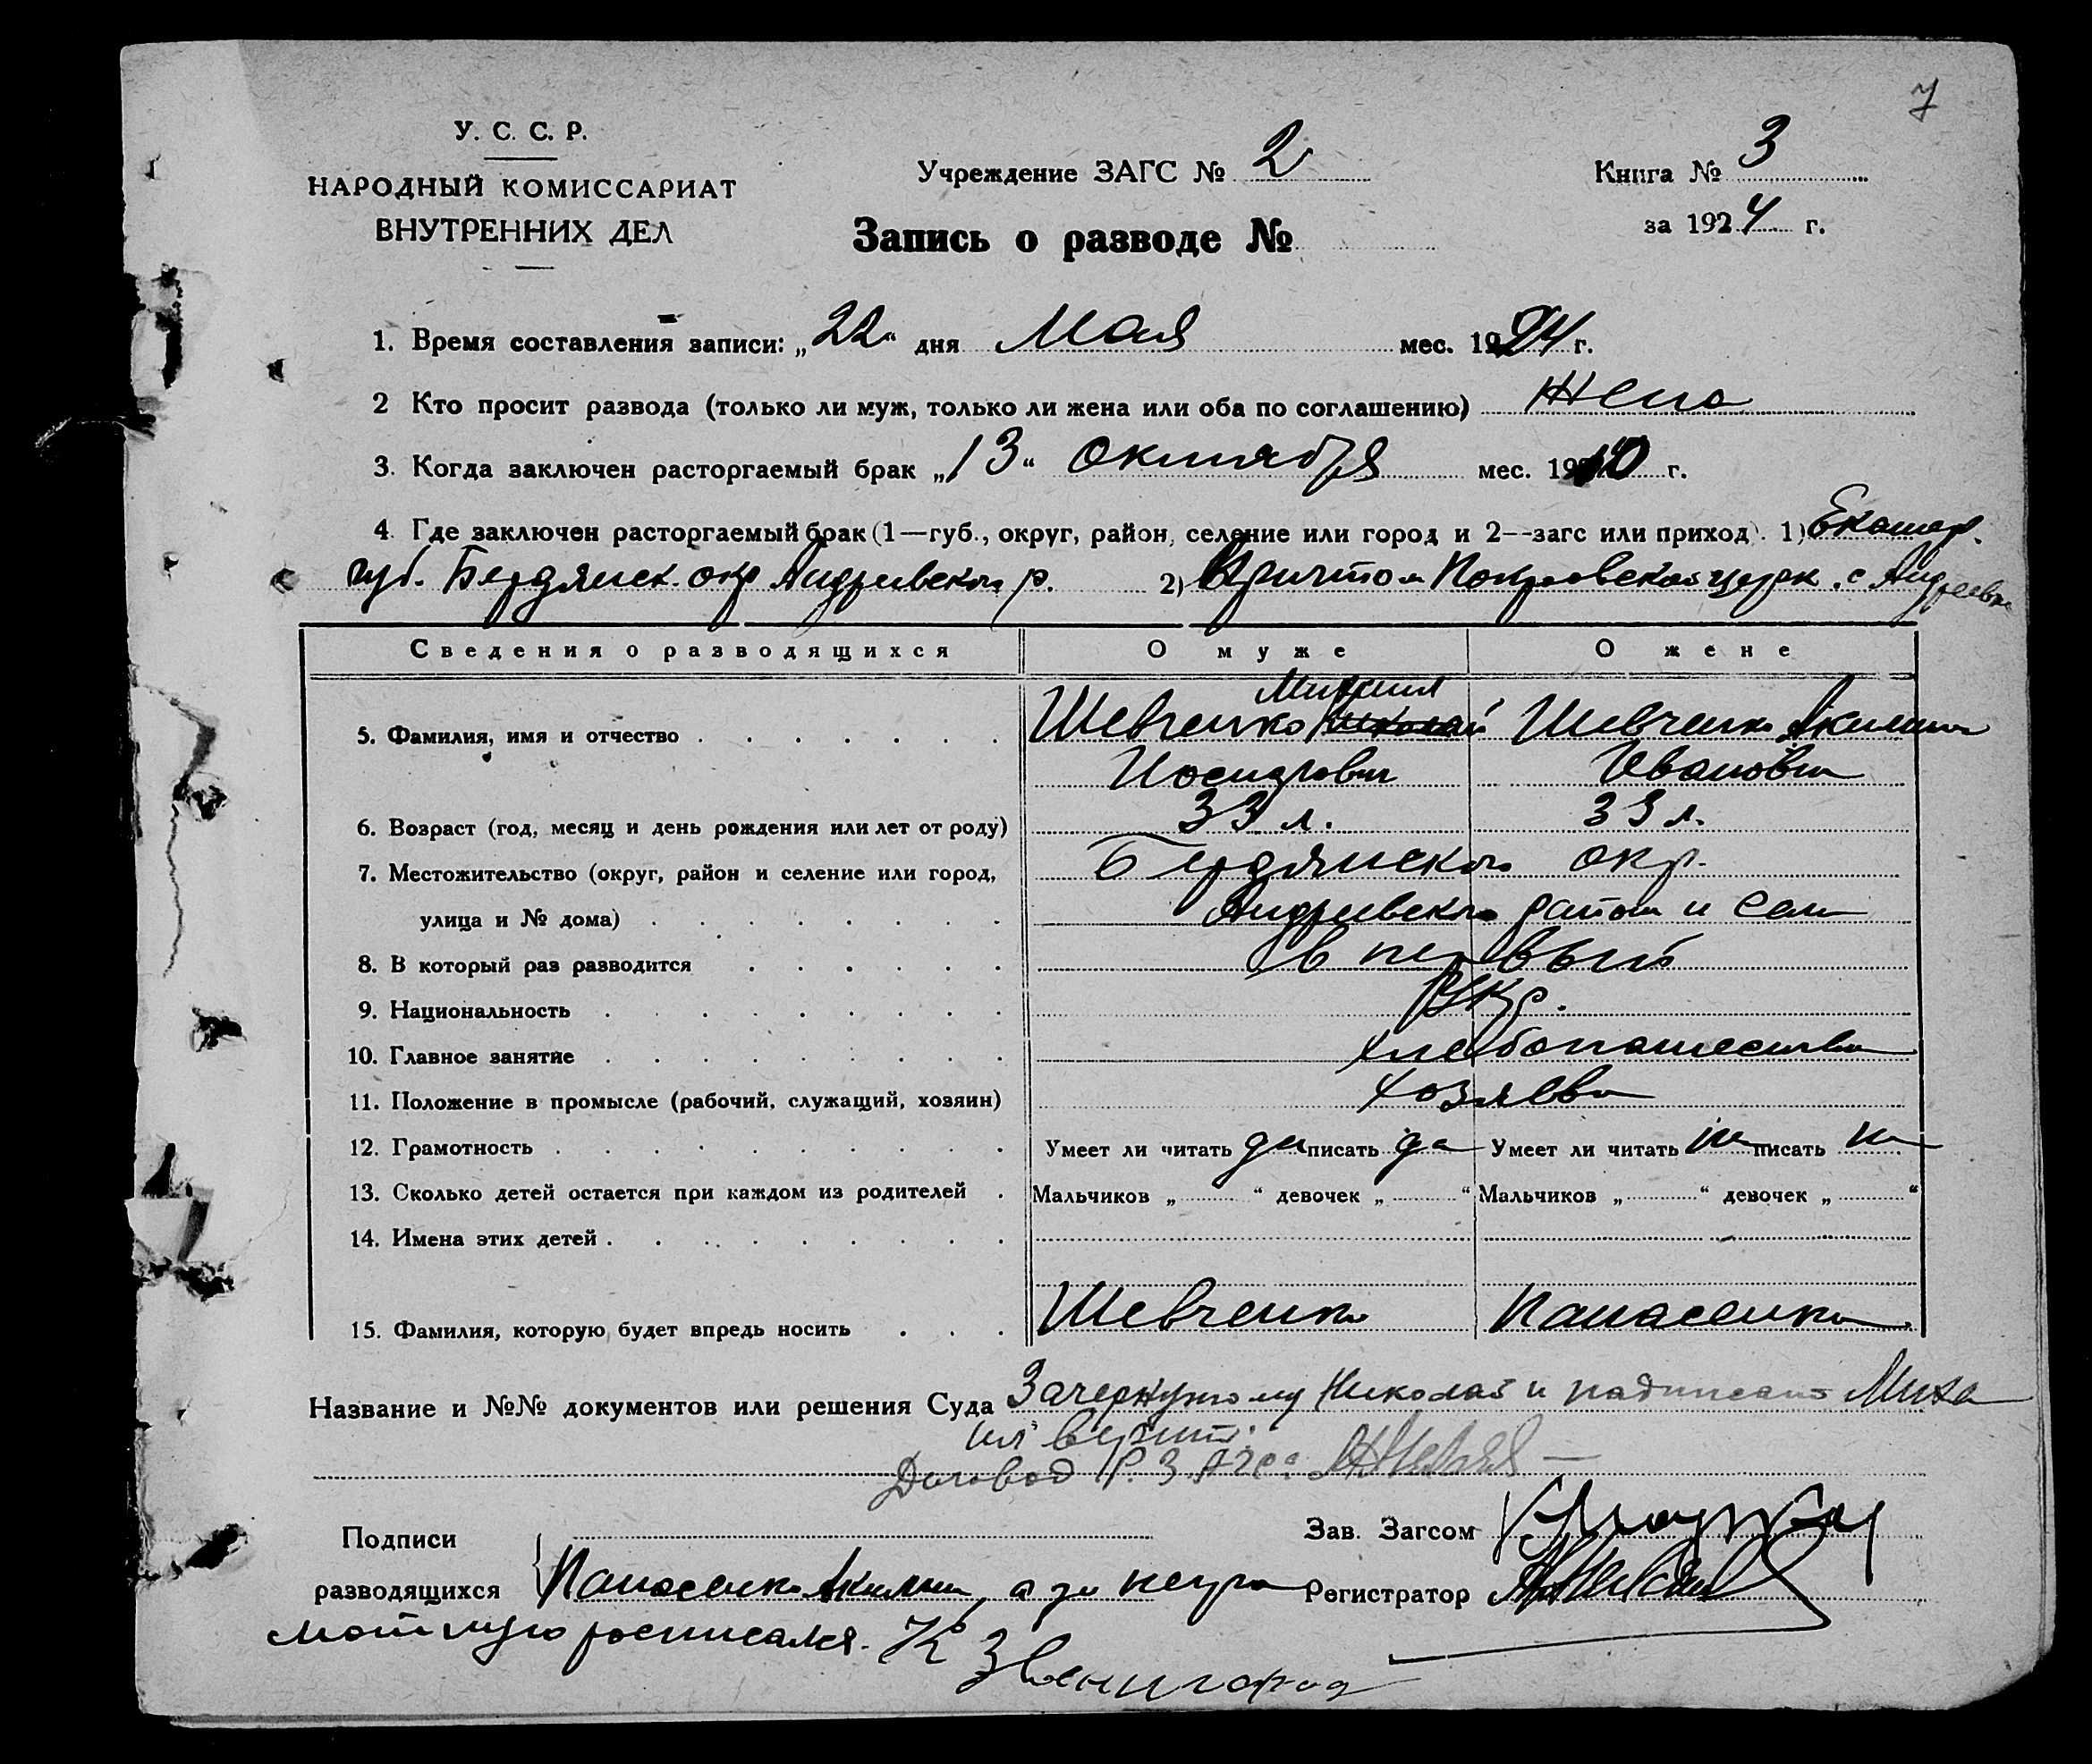 7
У. С. С. Р.
НАРОДНЫЙ КОМИССАРИАТ
ВНУТРЕННИХ ДЕЛ
Учреждение ЗАГС № 2
Книга № 3
за 1924 г.
Запись о разводе №
1. Время составления записи: „22“ дня Мая мес. 1924 г.
2 Кто просит развода (только ли муж, только ли жена или оба по соглашению) Жена
3. Когда заключен расторгаемый брак „13“ октября мес. 1910 г.
4. Где заключен расторгаемый брак (1—губ., округ, район, селение или город и 2--загс или приход). 1) Екатер.
губ. Бердянск. окр Андреевского р. 2) Причтом Покровской церк. с Андреевки
Сведения о разводящихся О муже О жене
Михаил
5. Фамилия, имя и отчество Шевченко Николай Шевченко Акилина
Иосифович Ивановна
6. Возраст (год, месяц и день рождения или лет от роду) 33 л. 33 л.
7. Местожительство (округ, район и селение или город, Бердянского окр.
улица и № дома) Андреевского района и села
8. В который раз разводится в первый
9. Национальность Укр.
10. Главное занятие хлебопашество
11. Положение в промысле (рабочий, служащий, хозяин) хозяева
12. Грамотность Умеет ли читать да писать да Умеет ли читать не писать не
13. Сколько детей остается при каждом из родителей Мальчиков „ “ девочек „ “ Мальчиков „ “ девочек „ “
14. Имена этих детей
15. Фамилия, которую будет впредь носить Шевченко Панасенко
Название и №№ документов или решения Суда Зачеркнутому Николай и надписано Миха
ил верить.
P. ЗАГС
Подписи
разводящихся
Зав. Загсом
Панасенко Акилина, а за неграмотную росписался. К Звенигород
Регистратор